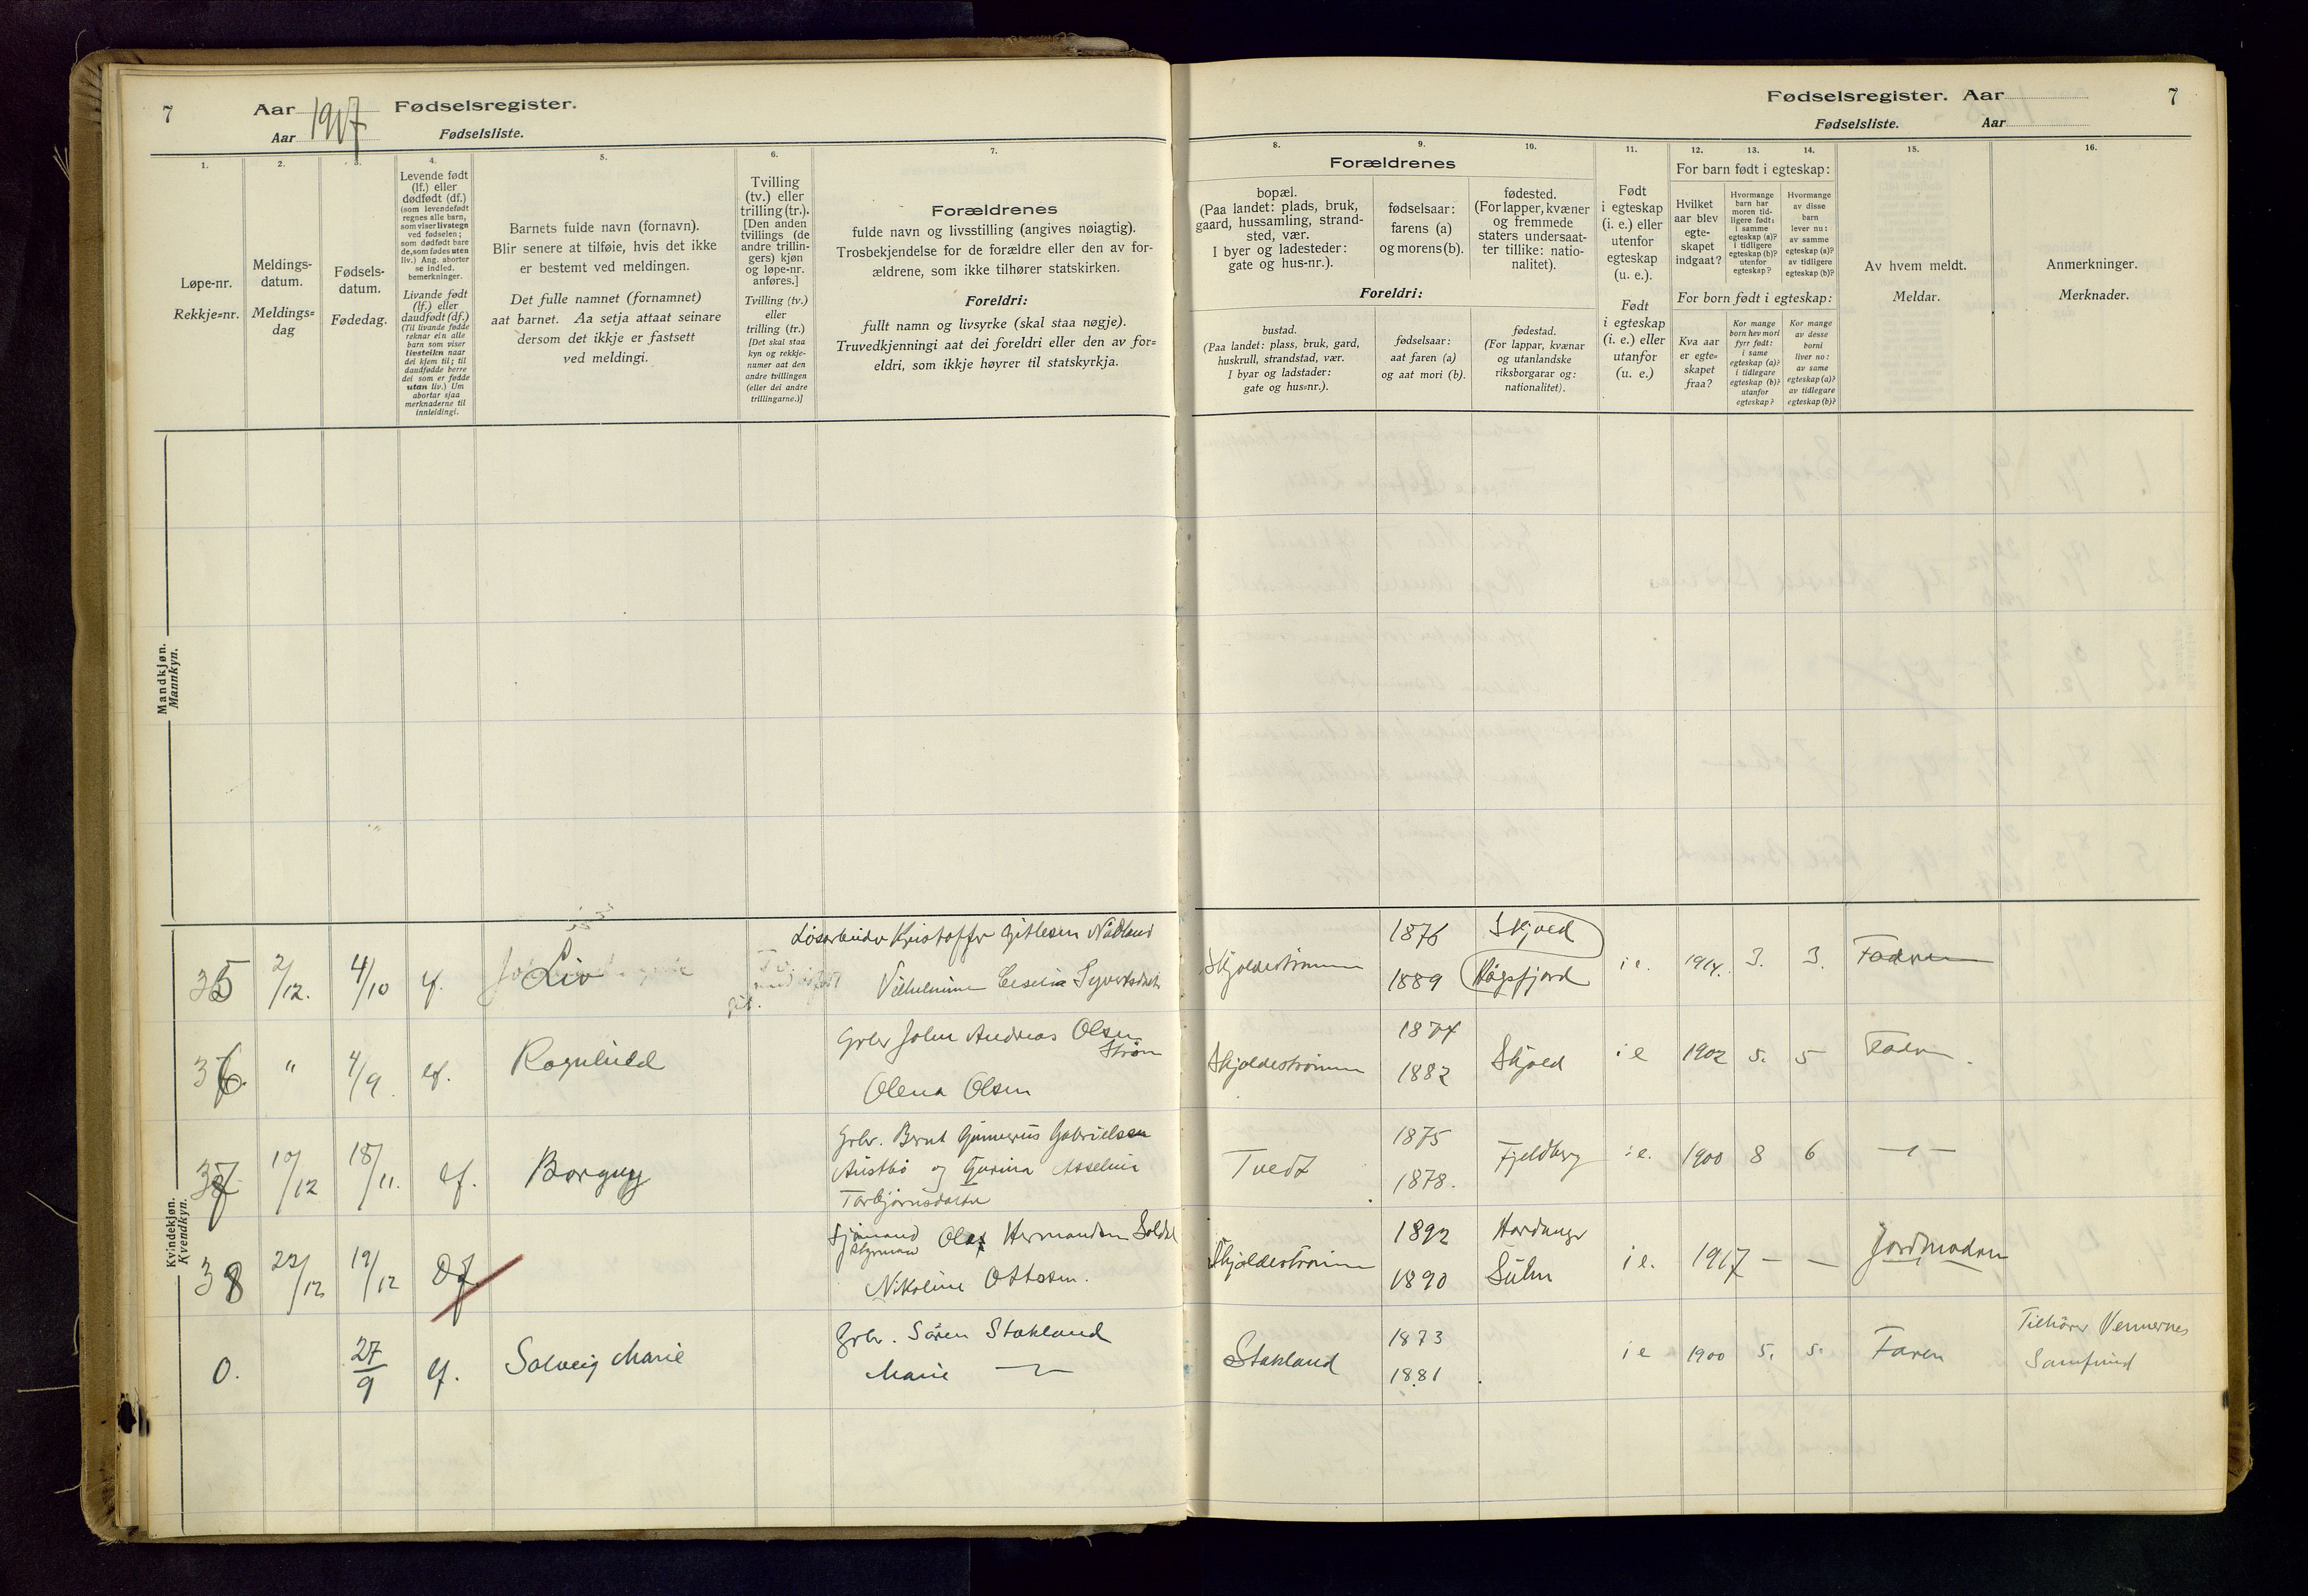 7
Aar 1917 Fødselsregister.
Aar Fødselsliste.
Fødselsregister. Aar
Fødselsliste. Aar
7
1.
Løpe-nr.
Rekkje=nr.
2.
Meldings-
datum.
Meldings=
dag
3.
Fødsels-
datum.
Fødedag.
4.
Levende født
(lf.) eller
dødfødt (df.)
(som levendefødt
regnes alle barn,
som viser livstegn
ved fødselen;
som dødfødt bare
de, som fødes uten
liv.) Ang. aborter
se indled.
bemerkninger.
Livande født
(lf.) eller
daudfødt (df.)
(Til livande fødde
reknar ein alle
barn som viser
livsteikn naar
dei kjem til; til
daudfødde berre
dei som er fødde
utan liv.) Um
abortar sjaa
merknaderne til
innleidingi.
5.
Barnets fulde navn (fornavn).
Blir senere at tilføie, hvis det ikke
er bestemt ved meldingen.
Det fulle namnet (fornamnet)
aat barnet. Aa setja attaat seinare
dersom det ikkje er fastsett
ved meldingi.
6.
Tvilling
(tv.) eller
trilling (tr.).
[Den anden
tvillings (de
andre trillin-
gers) kjøn
og løpe-nr.
anføres.]
Tvilling (tv.)
eller
trilling (tr.)
[Det skal staa
kyn og rekkje-
numer aat den
andre tvillingen
(eller dei andre
trillingarne.)]
7.
Forældrenes
fulde navn og livsstilling (angives nøiagtig).
Trosbekjendelse for de forældre eller den av for-
ældrene, som ikke tilhører statskirken.
Foreldri:
fullt namn og livsyrke (skal staa nøgje).
Truvedkjenningi aat dei foreldri eller den av for=
eldri, som ikkje høyrer til statskyrkja.
Forældrenes
8.
bopæl.
(Paa landet: plads, bruk,
gaard, hussamling, strand-
sted, vær.
I byer og ladesteder:
gate og hus-nr.).
9.
fødselsaar:
farens (a)
og morens (b).
10.
fødested.
(For lapper, kvæner
og fremmede
staters undersaat-
ter tillike: natio-
nalitet).
Foreldri:
bustad.
(Paa landet: plass, bruk, gard,
huskrull, strandstad, vær.
I byar og ladstader:
gate og hus=nr.).
fødselsaar:
aat faren (a)
og aat mori (b).
fødestad.
(For lappar, kvænar
og utanlandske
riksborgarar og:
nationalitet).
11.
Født
i egteskap
(i. e.) eller
utenfor
egteskap
(u. e.).
Født
i egteskap
(i. e.) eller
utanfor
(u. e.)
12. 13. 14.
For barn født i egteskap:
Hvilket
aar blev
egte-
skapet
indgaat?
Hvormange
barn har
moren tid-
ligere født:
i samme
egteskap (a)?
i tidligere
egteskap (b)?
utenfor
egteskap?
Hvormange
av disse
barn
lever nu:
av samme
egteskap (a)?
av tidligere
egteskap (b)?
For born født i egteskap:
Kva aar
er egte=
skapet
fraa?
Kor mange
born hev mori
fyrr født:
i same
egteskap (a)?
i tidlegare
egteskap (b)?
utanfor
egteskap?
Kor mange
av desse
borni
liver no:
av same
egteskap (a)?
av tidlegare
egteskap (b)?
15.
Av hvem meldt.
Meldar.
16.
Anmerkninger.
Merknader.
Mandkjøn.
Mannkyn.
Kvindekjøn.
Kvendkyn.
35 2/12. 4/10 lf. Liv
Løsarbeider Kristoffer Gitlesen Nådland
Vilhelmine Cecelia Syvertsdatter
Skjoldestrømmen 1876 Skjold
1889 Høgsfjord
i e. 1914. 3. 3. Faderen
36. " 4/9. lf. Ragnhild
Grbr John Andreas Olsen
Strøm
Olena Olsen
Skjoldestrømmen 1874
1882 Skjold
i e 1902 5. 5 Faderen.
37 10/12 18/11. lf. Borgny
Grbr. Bernt Gunnerius Gabrielsen
Austbø og Gurina Asseline
Torbjørnsdatter
Tvedt 1875
1878. Fjeldberg
i e. 1900 8 6 — " —
38 22/12 19/12 Df
Sjømand
Styrmand Olaf Hermansen Soldal
Nikoline Ottesen.
Skjoldestrømmen 1892 Hardanger
1890
i e. 1917 — — Jordmoderen
0. 27/9 lf. Solveig Marie
Grbr. Søren Stakland
Marie — " —
Stakland 1873
1881
i e 1900 5. 5. Faren
Tilhører Vennernes
Samfund